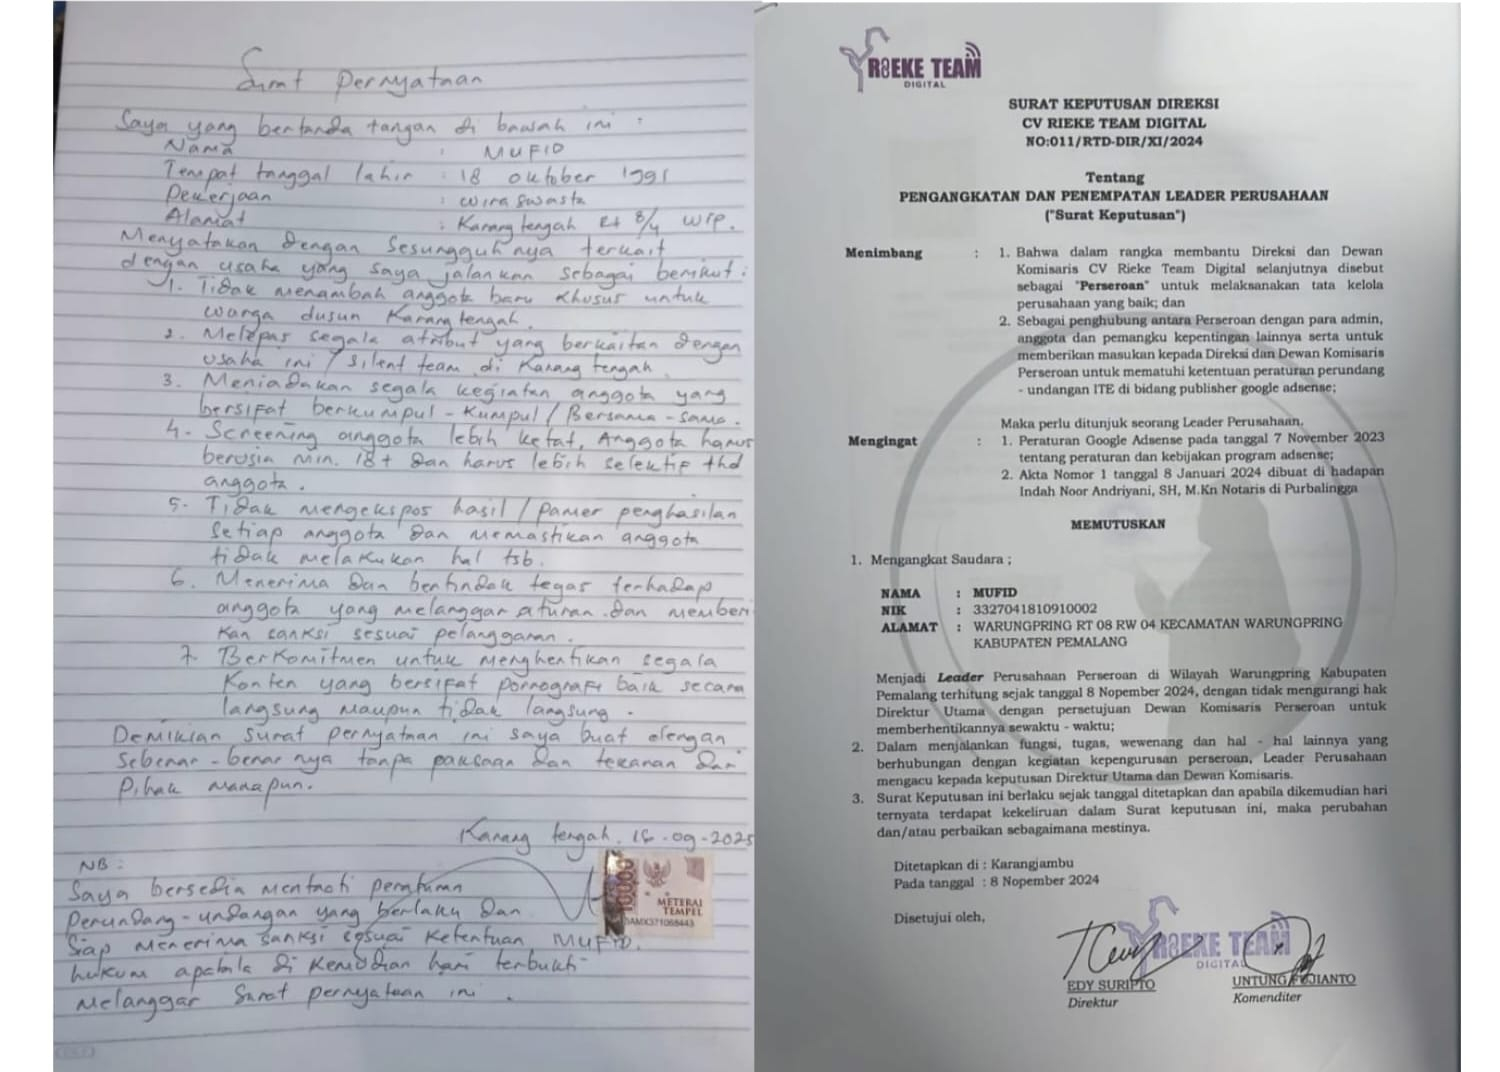 Surat Pernyataan
Saya yang bertanda tangan di bawah ini :
Nama : MUFID
Tempat tanggal lahir : 18 Oktober 1991
Pekerjaan : wiraswasta
Alamat : Karangtengah Rt 8/4 WrP.
Menyatakan dengan sesungguhnya terkait
dengan usaha yang saya jalankan sebagai berikut :
1. Tidak menambah anggota baru khusus untuk
warga dusun Karangtengah.
2. Melepas segala atribut yang berkaitan dengan
usaha ini / silent team di Karang tengah.
3. Meniadakan segala kegiatan anggota yang
bersifat berkumpul - kumpul / Bersama - sama.
4. Screening anggota lebih ketat, Anggota harus
berusia Min. 18+ dan harus lebih selektif thd
anggota.
5. Tidak mengekspos hasil / pamer penghasilan
setiap anggota dan memastikan anggota
tidak melakukan hal tsb.
6. Menerima dan bertindak tegas terhadap
anggota yang melanggar aturan dan memberi
kan sanksi sesuai pelanggaran.
7. Berkomitmen untuk menghentikan segala
konten yang bersifat pornografi baik secara
langsung maupun tidak langsung.
Demikian surat pernyataan ini saya buat dengan
sebenar - benar nya tanpa paksaan dan tekanan dari
pihak manapun.
Karang tengah, 16-09-2025
METERAI
TEMPEL
10000
MUFID.
NB :
Saya bersedia mentaati peraturan
perundang-undangan yang berlaku dan
siap menerima sanksi sesuai ketentuan
hukum apabila di kemudian hari terbukti
melanggar Surat pernyataan ini.
R8EKE TEAM
DIGITAL
SURAT KEPUTUSAN DIREKSI
CV RIEKE TEAM DIGITAL
NO:011/RTD-DIR/XI/2024
Tentang
PENGANGKATAN DAN PENEMPATAN LEADER PERUSAHAAN
("Surat Keputusan")
Menimbang : 1. Bahwa dalam rangka membantu Direksi dan Dewan
Komisaris CV Rieke Team Digital selanjutnya disebut
sebagai "Perseroan" untuk melaksanakan tata kelola
perusahaan yang baik; dan
2. Sebagai penghubung antara Perseroan dengan para admin,
anggota dan pemangku kepentingan lainnya serta untuk
memberikan masukan kepada Direksi dan Dewan Komisaris
Perseroan untuk mematuhi ketentuan peraturan perundang
- undangan ITE di bidang publisher google adsense;
Maka perlu ditunjuk seorang Leader Perusahaan.
Mengingat : 1. Peraturan Google Adsense pada tanggal 7 November 2023
tentang peraturan dan kebijakan program adsense;
2. Akta Nomor 1 tanggal 8 Januari 2024 dibuat di hadapan
Indah Noor Andriyani, SH, M.Kn Notaris di Purbalingga
MEMUTUSKAN
1. Mengangkat Saudara ;
NAMA : MUFID
NIK : 3327041810910002
ALAMAT : WARUNGPRING RT 08 RW 04 KECAMATAN WARUNGPRING
KABUPATEN PEMALANG
Menjadi Leader Perusahaan Perseroan di Wilayah Warungpring Kabupaten
Pemalang terhitung sejak tanggal 8 Nopember 2024, dengan tidak mengurangi hak
Direktur Utama dengan persetujuan Dewan Komisaris Perseroan untuk
memberhentikannya sewaktu - waktu;
2. Dalam menjalankan fungsi, tugas, wewenang dan hal - hal lainnya yang
berhubungan dengan kegiatan kepengurusan perseroan, Leader Perusahaan
mengacu kepada keputusan Direktur Utama dan Dewan Komisaris.
3. Surat Keputusan ini berlaku sejak tanggal ditetapkan dan apabila dikemudian hari
ternyata terdapat kekeliruan dalam Surat keputusan ini, maka perubahan
dan/atau perbaikan sebagaimana mestinya.
Ditetapkan di : Karangjambu
Pada tanggal : 8 Nopember 2024
Disetujui oleh,
R8EKE TEAM
DIGITAL
EDY SURIPTO
Direktur
UNTUNG PUJIANTO
Komenditer